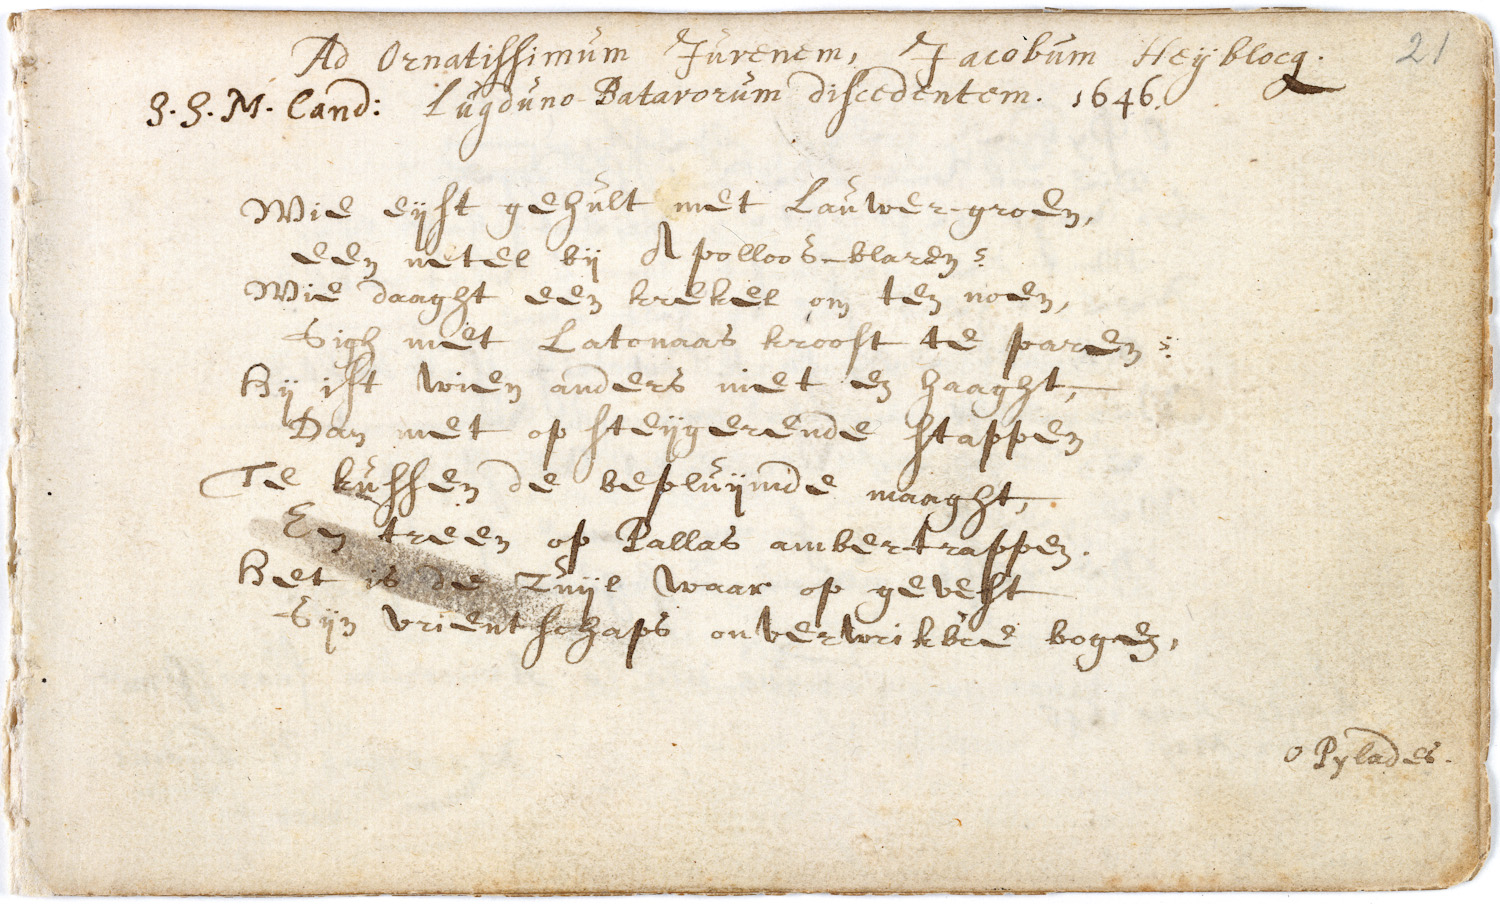 21
Ad Ornatissimum Juvenem, Jacobum Heyblocq.
S. S. M. Cand: Lugduno-Batavorum discedentem. 1646.
Wie eyst gehult met Lauwer-groen,
een netel bij Apolloos-blaren?
Wie daaght een krekel om ten noen,
Sigh met Latonaas kroost te paren?
Hij ist wien anders niet en haaght,
Dan met opsteijgerende stappen
Te kussen de bepluijmde maaght,
En treen op Pallas amber-trappen.
Het is de Zuijl waar op gevest
Sijn vrientschaps onverwrikbre bogen,
o Pylades.